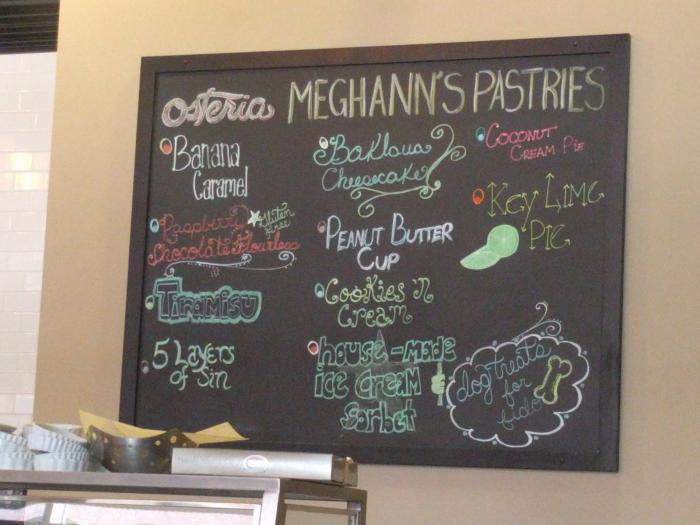 osteria MEGHANN'S PASTRIES
Banana
Caramel
Raspberry
Gluten
Free
Chocolate Flourless
Tiramisu
5 Layers
of Sin
Baklava
Cheesecake
PEANUT BUTTER
CUP
Cookies 'n
Cream
house-made
ice cream
sorbet
COCONUT
CREAM PIE
Key Lime
Pie
dog treats
for
fido